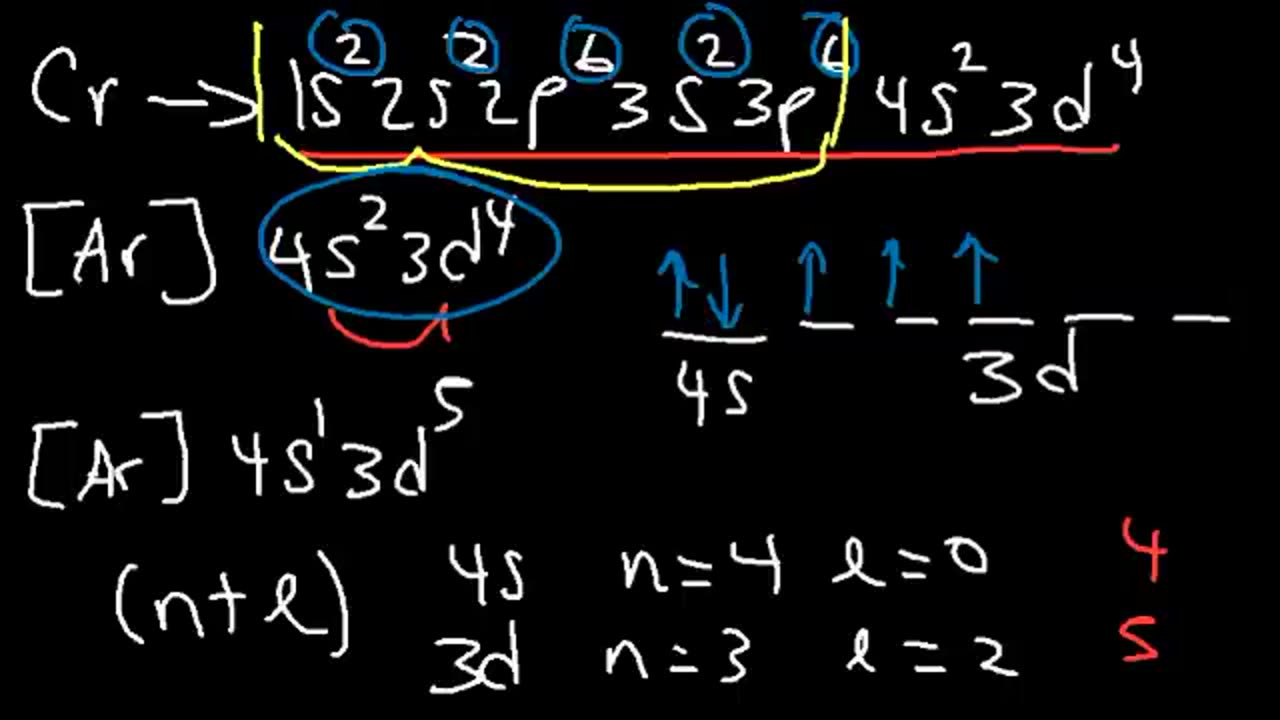 Cr → 1s²2s²2p⁶3s²3p⁶ 4s²3d⁴
[Ar] 4s²3d⁴
↑↓ ↑ ↑ ↑
4s 3d
[Ar] 4s¹3d⁵
(n+l) 4s n=4 l=0 4
3d n=3 l=2 5